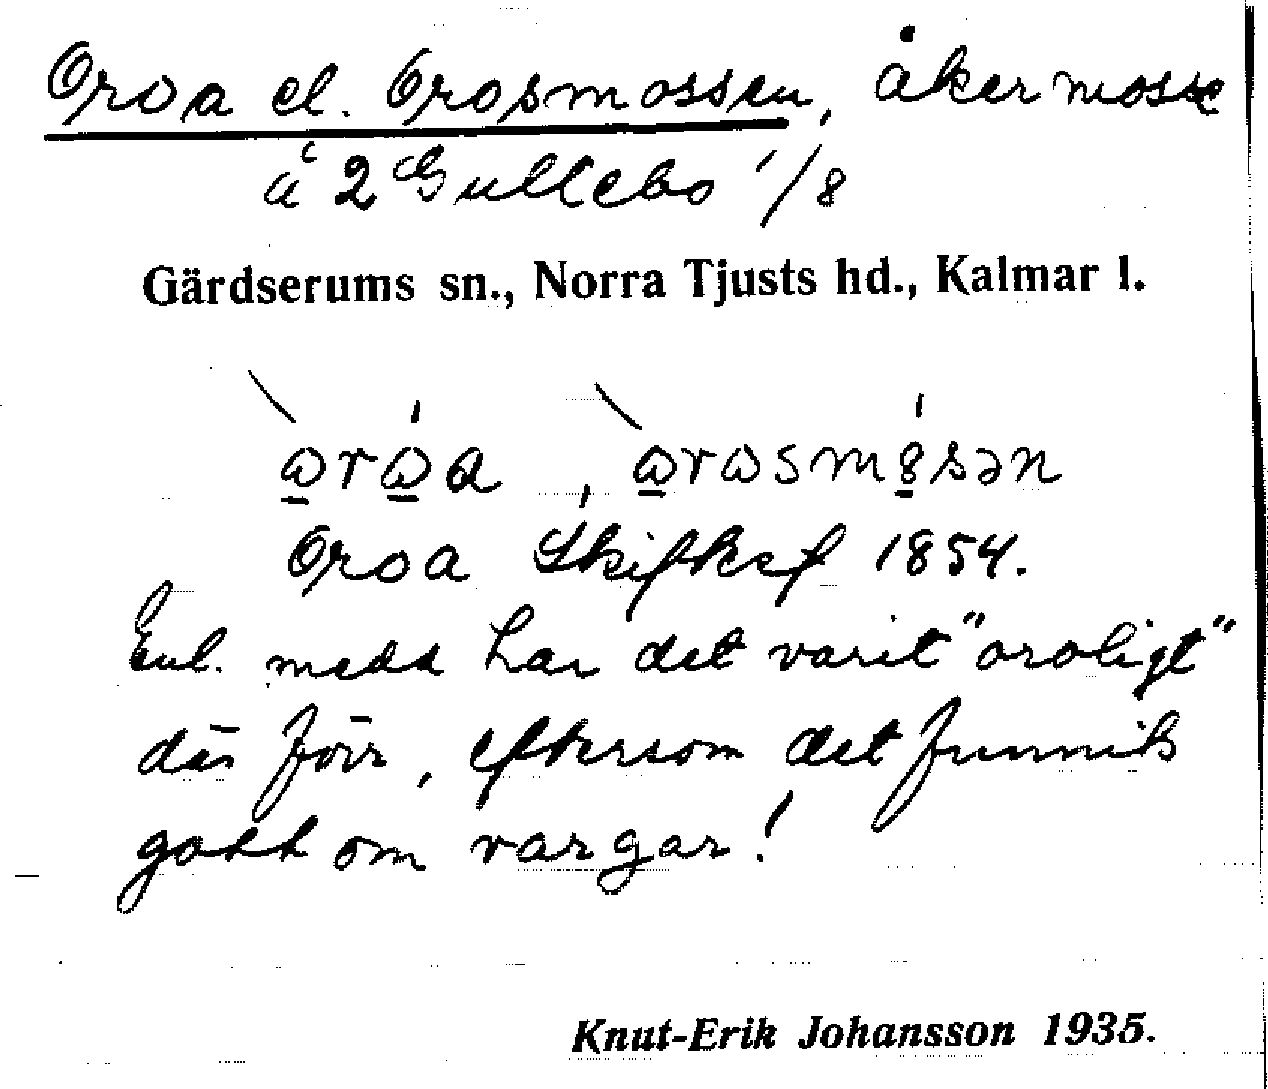 Oroa el. Orosmossen, åkermosse
å 2 Gullebo 1/8
Gärdserums sn., Norra Tjusts hd., Kalmar l.
Oroa Skifksf 1854.
Enl. medd har det varit "oroligt"
där förr, eftersom det funnits
gott om vargar!
Knut-Erik Johansson 1935.